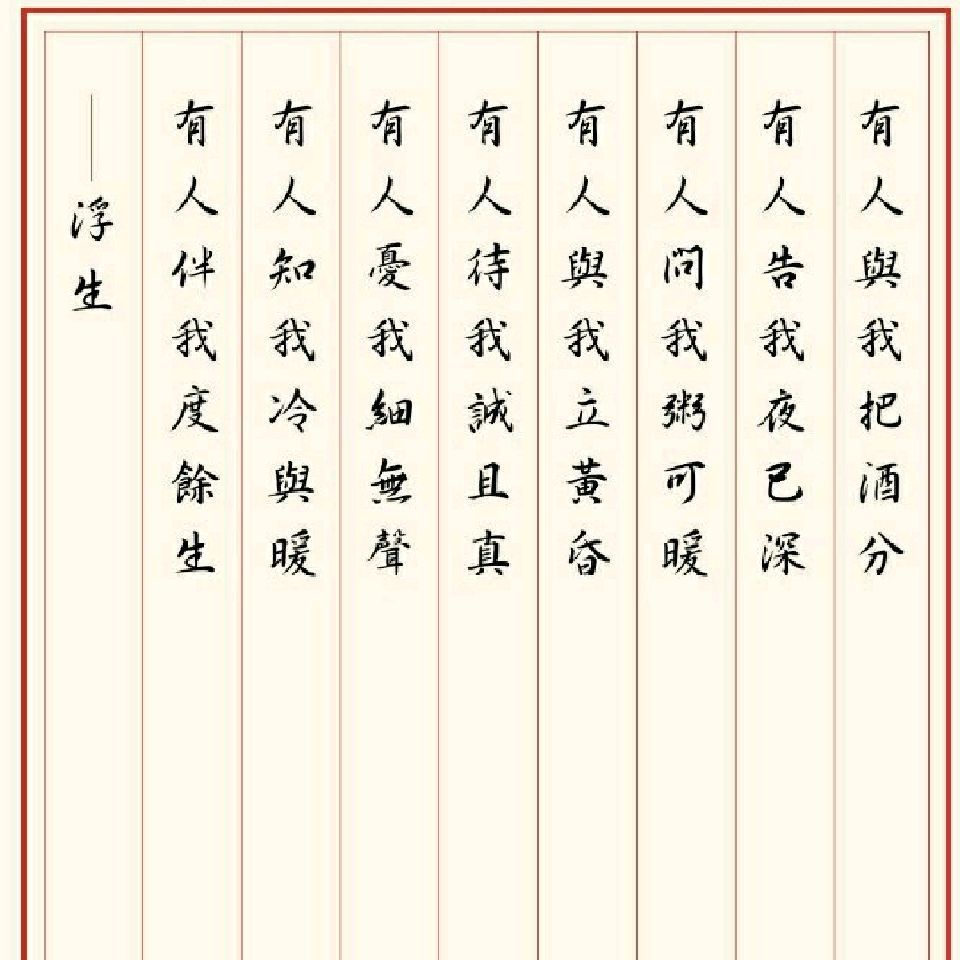 有人與我把酒分
有人告我夜已深
有人問我粥可暖
有人與我立黃昏
有人待我誠且真
有人憂我細無聲
有人知我冷與暖
有人伴我度餘生
——浮生